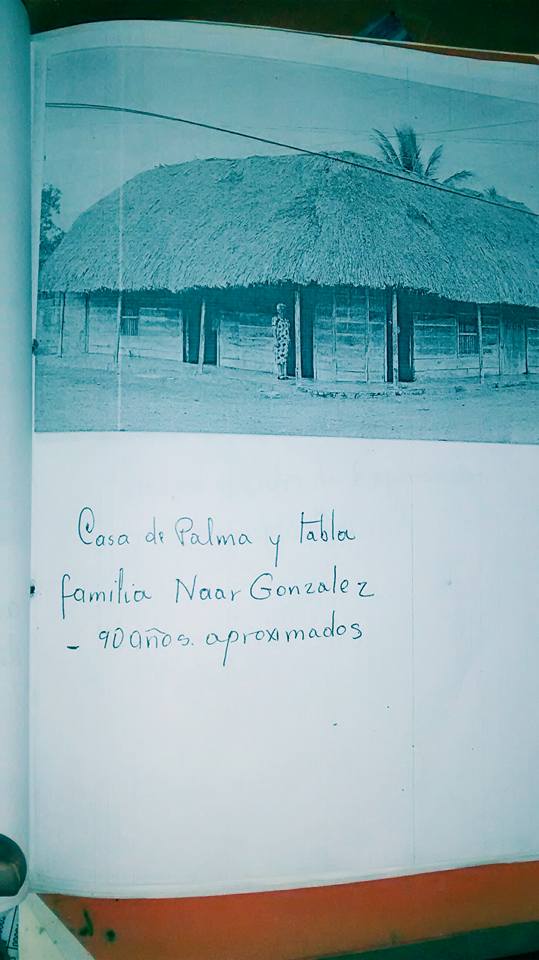 Casa de Palma y tabla
familia Naar Gonzalez
- 90 años. aproximados